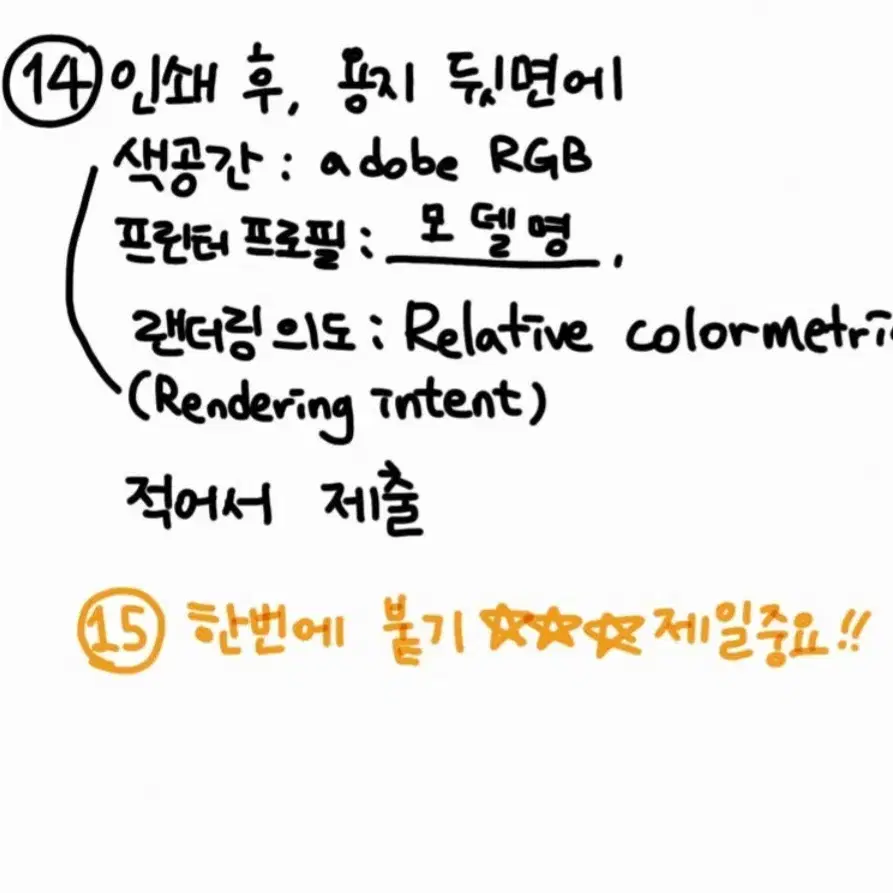 ⑭ 인쇄 후, 용지 뒷면에
색공간 : adobe RGB
프린터 프로필 : 모델명.
랜더링 의도 : Relative colormetri
(Rendering intent)
적어서 제출
⑮ 한번에 붙기 ☆☆☆ 제일중요!!